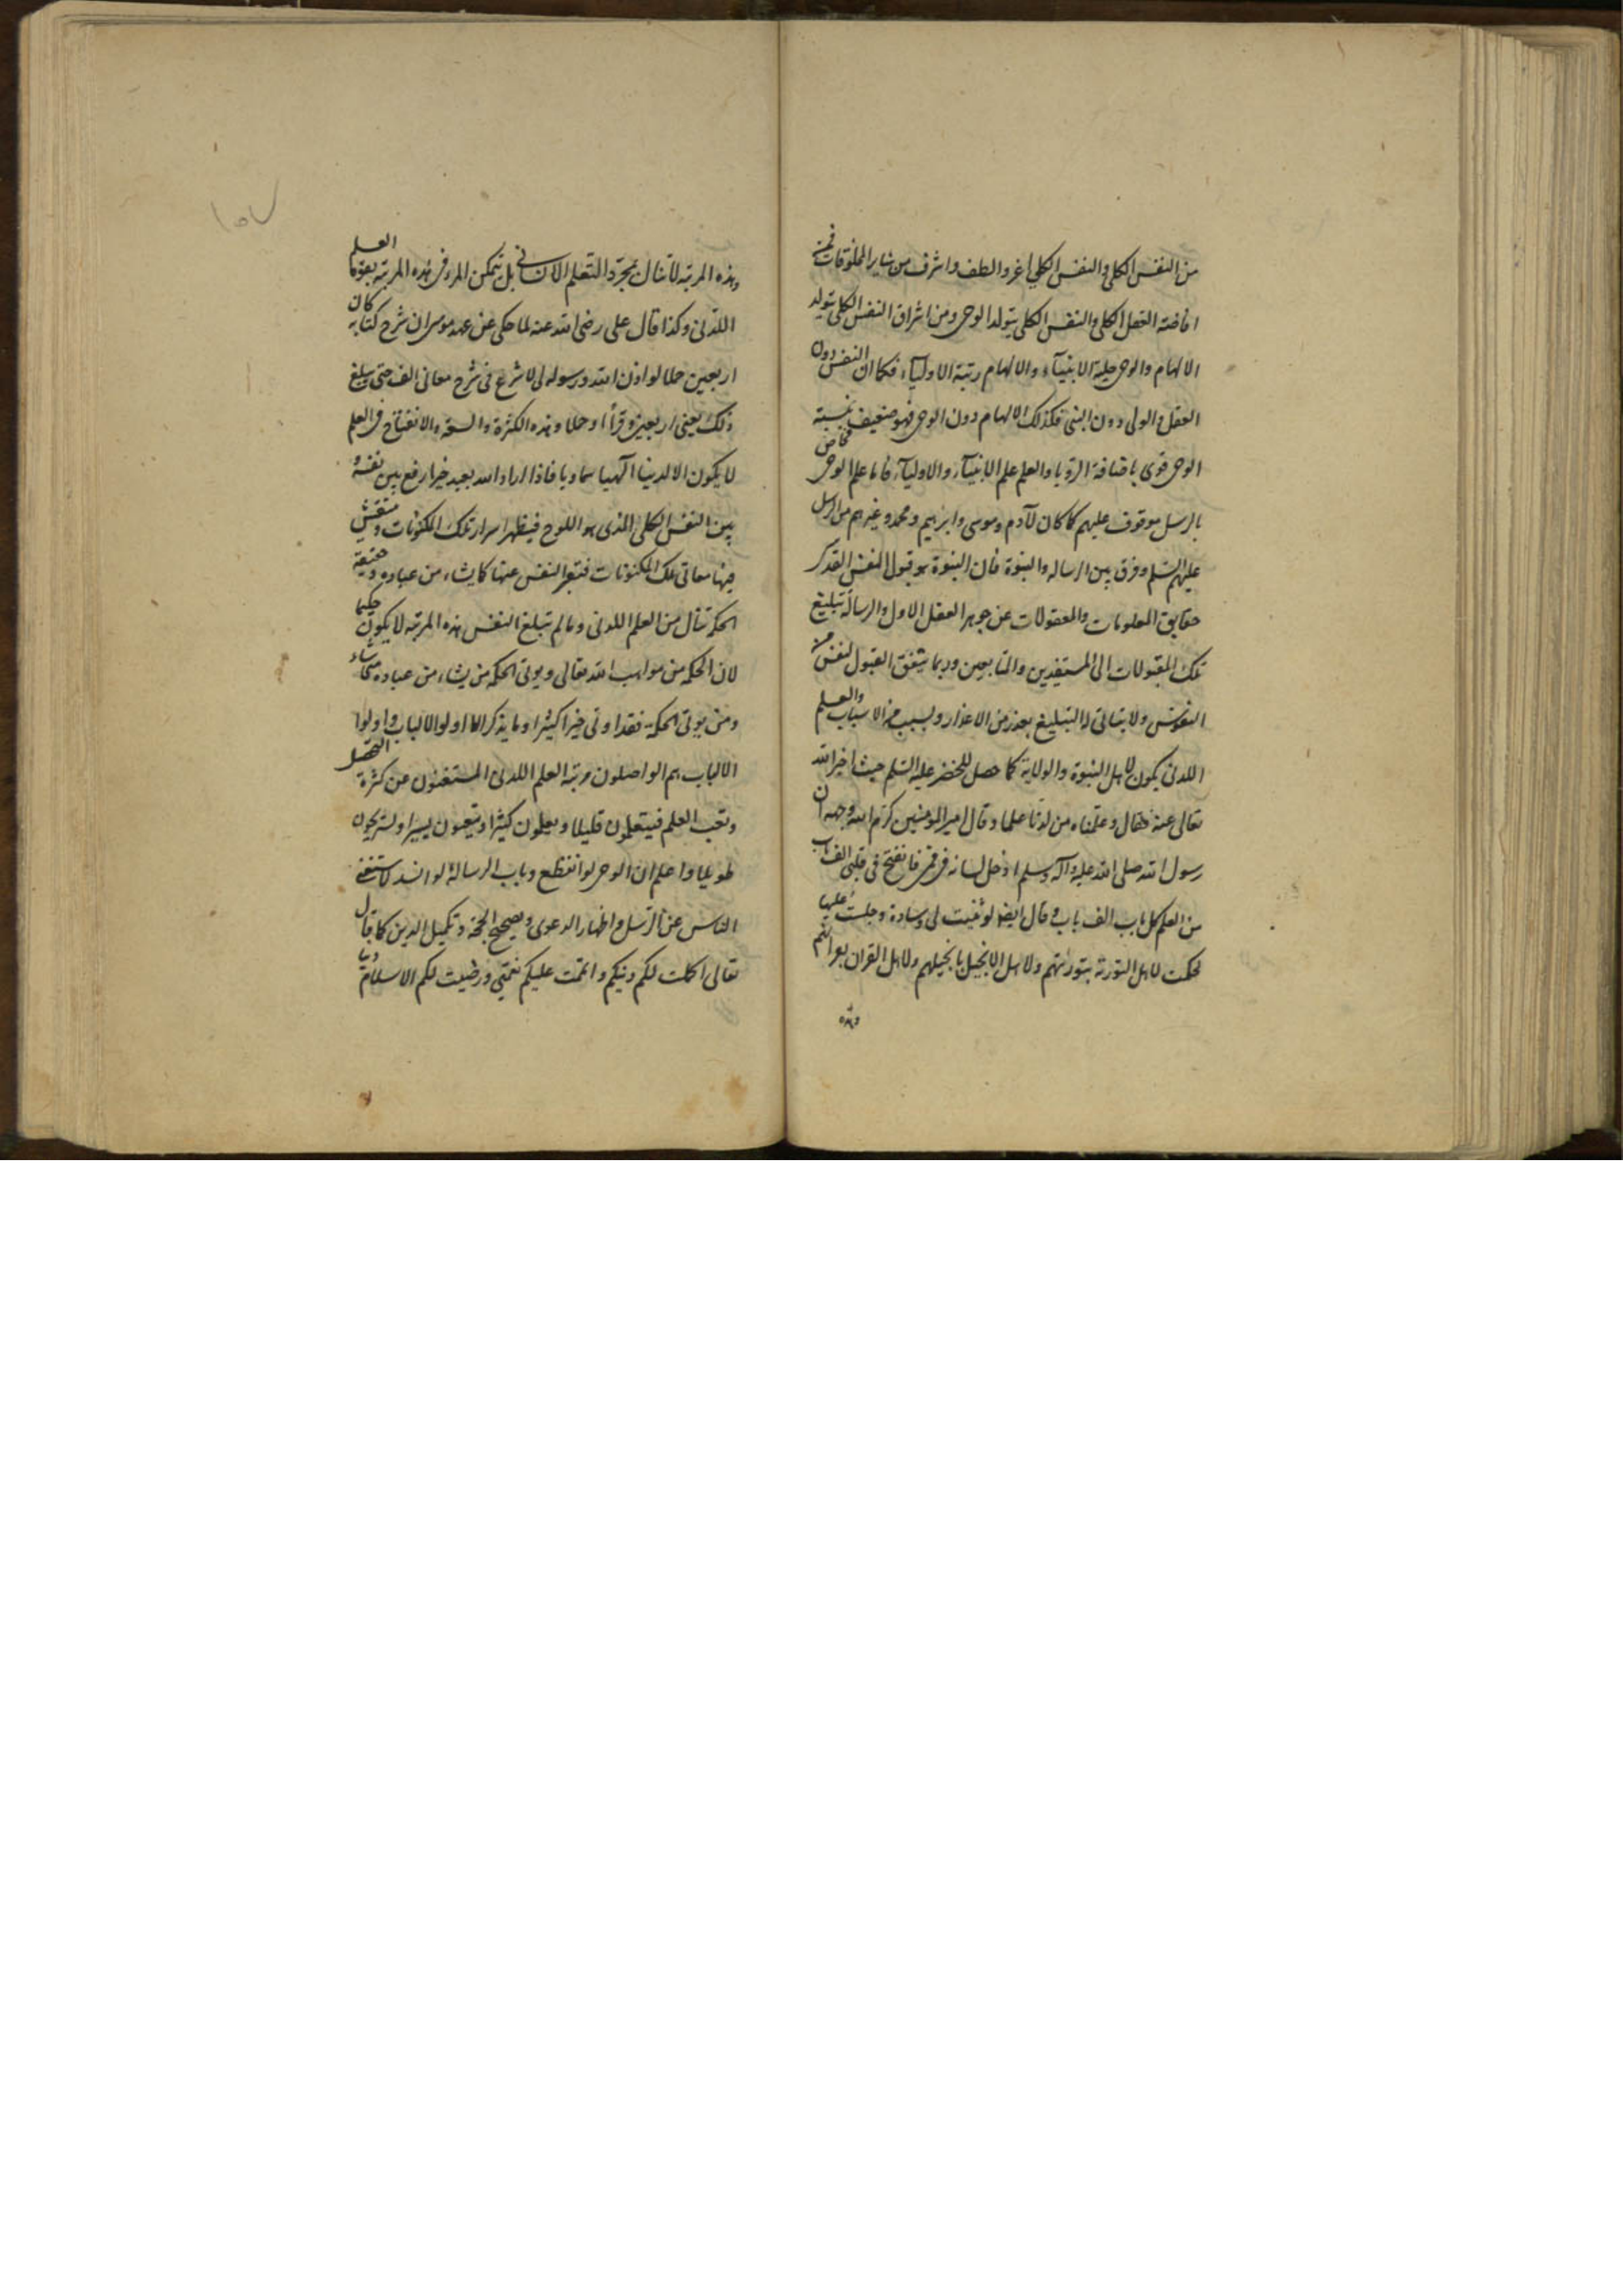 من النفس الكلى والنفس الكلى اغر والطف واشرف من ساير المخلوقات فمن
افاضة العقل الكلى والنفس الكلى يتولد الوحى ومن اشراق النفس الكلى يتولد
الالهام والوحى حلية الانبيآء والالهام رتبة الاوليآء فكما ان النفس دون
العقل والولى دون النبى فكذلك الالهام دون الوحى فهو ضعيف بنسبة
الوحى قوى باضافة الرويا والعلم علم الانبيآء والاوليآء فاما علم الوحى فخاص
بالرسل موقوف عليهم كما كان لآدم وموسى وابرهيم ومحمد وغيرهم من الرسل
عليهم السلم وفرق بين الرساله والنبوة فان النبوة هو قبول النفس القدسى
حقايق المعلومات والمعقولات عن جوهر العقل الاول والرسالة تبليغ
تلك المقبولات الى المستفيدين والتابعين وربما يتفق القبول لنفس من
النفوس ولا يتاتى له التبليغ بعذر من الاعذار ولسبب من الاسباب والعلم
اللدنى يكون لاهل النبوة والولاية كما حصل للخضر عليه السلم حيث اخبر الله
تعالى عنه فقال وعلمناه من لدنا علما وقال امير المومنين كرم الله وجهه ان
رسول الله صلى الله عليه وآله وسلم ادخل لسانه فى فمى فانفتح فى قلبى الف باب
من العلم كل باب الف باب وقال ايضا لو ثنيت لى وسادة وجلست عليها
لحكمت لاهل التورية بتوريتهم ولاهل الانجيل بانجيلهم ولاهل القران بقرانهم
وهذه
١٥٧
وهذه المرتبه لا تنال بمجرد التعلم الانسانى بل يتمكن المرء فى هذه المرتبه بقوة العلم
اللدنى وكذا قال على رضى الله عنه لما حكى عن عهد موسى ان شرح كتابه كان
اربعين حملا لو اذن الله ورسوله لى لاشرع فى شرح معانى الف حتى يبلغ
ذلك يعنى اربعين وقرأ او حملا وهذه الكثرة والسعة والانفتاح فى العلم
لا يكون الا لدنيا الهيا سماويا فاذا اراد الله بعبد خيرا رفع بين نفسه و
بين النفس الكلى الذى هو اللوح فيظهر اسرار تلك المكونات وينتقش
فيها معانى تلك المكنونات فتعبر النفس عنها كما يشاء من عباده وحقيقة
الحكمة تنال من العلم اللدنى ومالم تبلغ النفس هذه المرتبه لا يكون حكيما
لان الحكمه من مواهب الله تعالى ويوتى الحكمه من يشاء من عباده
ومن يوتى الحكمة فقد اوتى خيرا كثيرا وما يذكر الا اولو الالباب واولوا
الالباب هم الواصلون مرتبة العلم اللدنى المستغنون عن كثرة التحصيل
وتعب العلم فيتعلمون قليلا ويعلمون كثيرا ويتعبون يسيرا ويستريحون
طويلا واعلم ان الوحى لو انقطع وباب الرسالة لو انسد لاستغنى
الناس عن الرسل واظهار الدعوى وتصحيح الحجة وتكميل الدين كما قال
تعالى اكملت لكم دينكم واتممت عليكم نعمتى ورضيت لكم الاسلام دينا